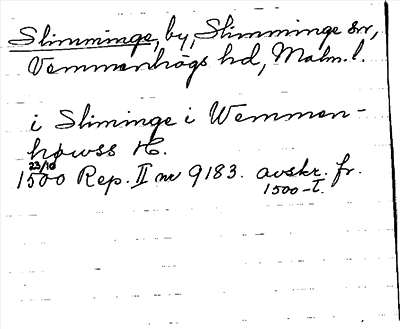 Slimminge, by, Slimminge sn,
Vemmenhögs hd, Malm. l.
i Sliminge i Wemmen-
høwss H.
23/10
1500 Rep. II nr 9183. avskr. fr.
1500-T.